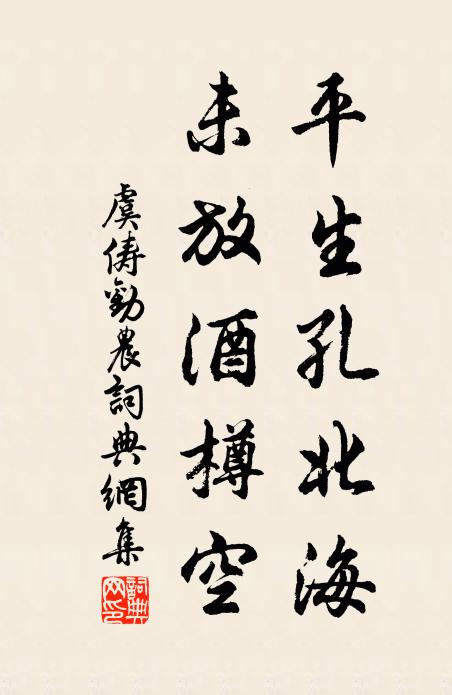 平生孔北海
未放酒樽空
虞俦勸農詞典網集
詞典网印